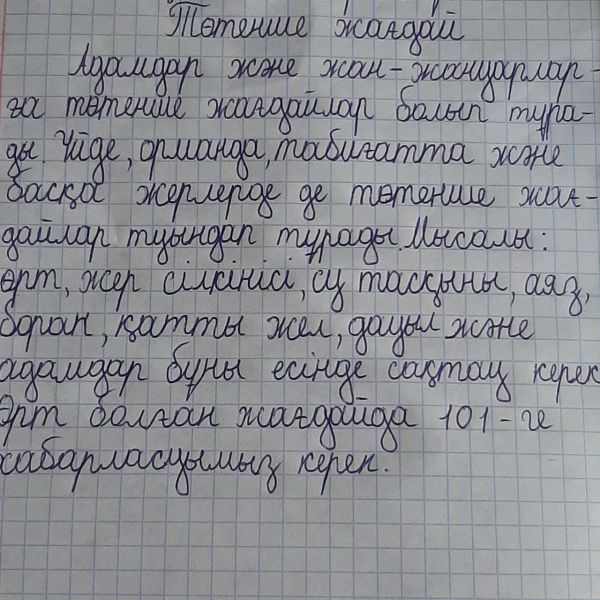 Төтенше жағдай
Адамдар және жан-жануарлар-
ға төтенше жағдайлар болып тұра-
ды. Үйде, орманда, табиғатта және
басқа жерлерде де төтенше жағ-
дайлар туындап тұрады. Мысалы:
өрт, жер сілкінісі, су тасқыны, аяз,
боран, қатты жел, дауыл және
адамдар бұны есінде сақтау керек
Өрт болған жағдайда 101-ге
хабарласуымыз керек.